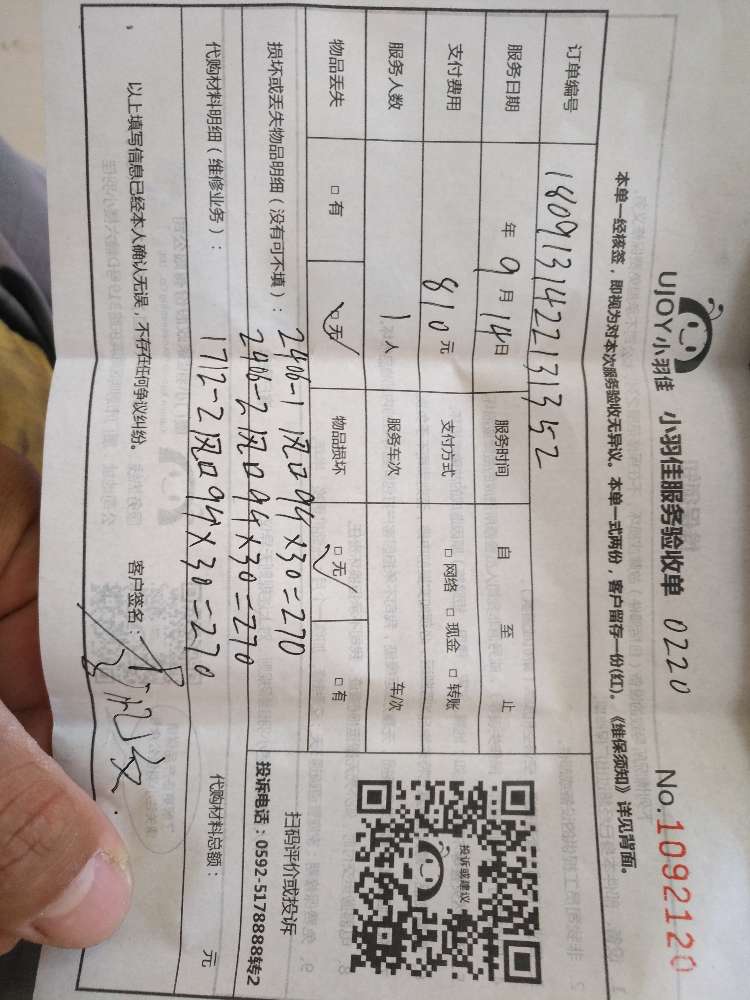 UJOY小羽佳 小羽佳服务验收单 0220 No.1092120
本单一经核签，即视为对本次服务验收无异议。本单一式两份，客户留存一份(红)。《维保须知》详见背面。
订单编号 1809131422131352
服务日期 年 9 月 14 日 服务时间 自 至 止
支付费用 810 元 支付方式 □ 网络 □ 现金 □ 转账
服务人数 1 人 服务车次 车/次
物品丢失 □ 有 □ 无 物品损坏 □ 无 □ 有
投诉或建议
扫码评价或投诉
投诉电话：0592-5178888转2
损坏或丢失物品明细（没有可不填）： 2406-1 风口 9个×30=270
2406-2 风口 9个×30=270
代购材料明细（维修业务）： 1712-2 风口 9个×30=270
代购材料总额： 元
以上填写信息已经本人确认无误，不存在任何争议纠纷。 客户签名：